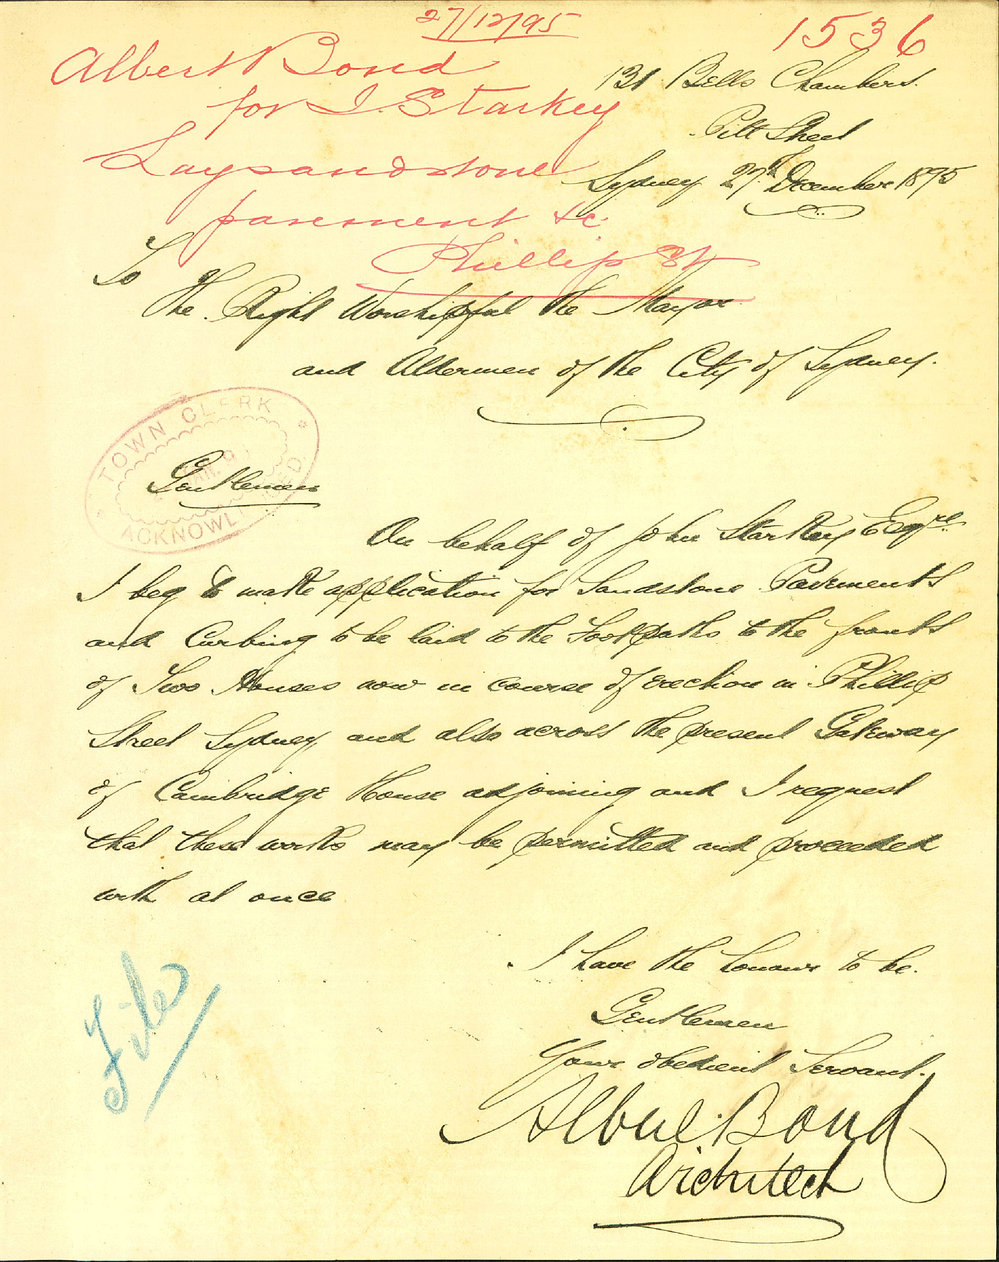 27/12/95
1536
Albert Bond
for J. Starkey
Lay sandstone
pavement &c
Phillip St
131 Bells Chambers.
Pitt Street
Sydney 27th December 1895
To
The Right Worshipful the Mayor
and Aldermen of the City of Sydney.
TOWN CLERK
ACKNOWLEDGED
Gentlemen
On behalf of John Starkey Esqre
I beg to make application for Sandstone Pavements
and Curbing to be laid to the Footpaths to the fronts
of Two Houses now in course of erection in Phillip
Street Sydney and also across the present Gateway
of Cambridge House adjoining and I request
that these works may be permitted and proceeded
with at once
I have the honour to be.
Gentlemen
Your obedient Servant.
Albert Bond
Architect
File